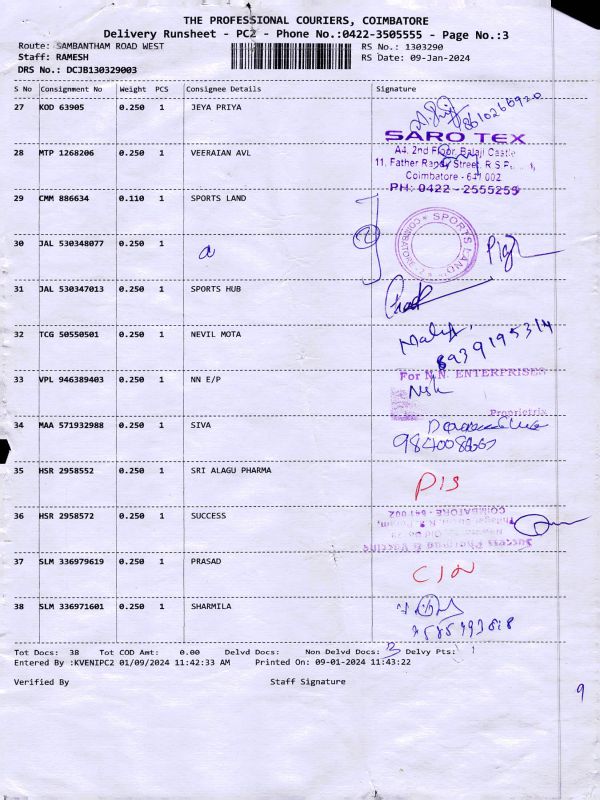 THE PROFESSIONAL COURIERS, COIMBATORE
Delivery Runsheet - PC2 - Phone No.:0422-3505555 - Page No.:3
Route: SAMBANTHAM ROAD WEST RS No.: 1303290
Staff: RAMESH RS Date: 09-Jan-2024
DRS No.: DCJB130329003
S No Consignment No Weight PCS Consignee Details Signature
27 KOD 63905 0.250 1 JEYA PRIYA
SARO TEX
28 MTP 1268206 0.250 1 VEERAIAN AVL
A4, 2nd Floor, Balaji Castle
11, Father Randy Street, R.S.
Coimbatore - 641 002
PH: 0422 - 2555259
29 CMM 886634 0.110 1 SPORTS LAND
SPORTS LAND COIMBATORE
30 JAL 530348077 0.250 1
31 JAL 530347013 0.250 1 SPORTS HUB
32 TCG 50550501 0.250 1 NEVIL MOTA
8939195314
33 VPL 946389403 0.250 1 NN E/P
For N.N. ENTERPRISES
Proprietrix
34 MAA 571932988 0.250 1 SIVA
35 HSR 2958552 0.250 1 SRI ALAGU PHARMA
PIS
36 HSR 2958572 0.250 1 SUCCESS
COIMBATORE - 641 002
37 SLM 336979619 0.250 1 PRASAD
CIN
38 SLM 336971601 0.250 1 SHARMILA
Tot Docs: 38 Tot COD Amt: 0.00 Delvd Docs: Non Delvd Docs: 3 Delvy Pts: 1
Entered By :KVENIPC2 01/09/2024 11:42:33 AM Printed On: 09-01-2024 11:43:22
Verified By Staff Signature
9